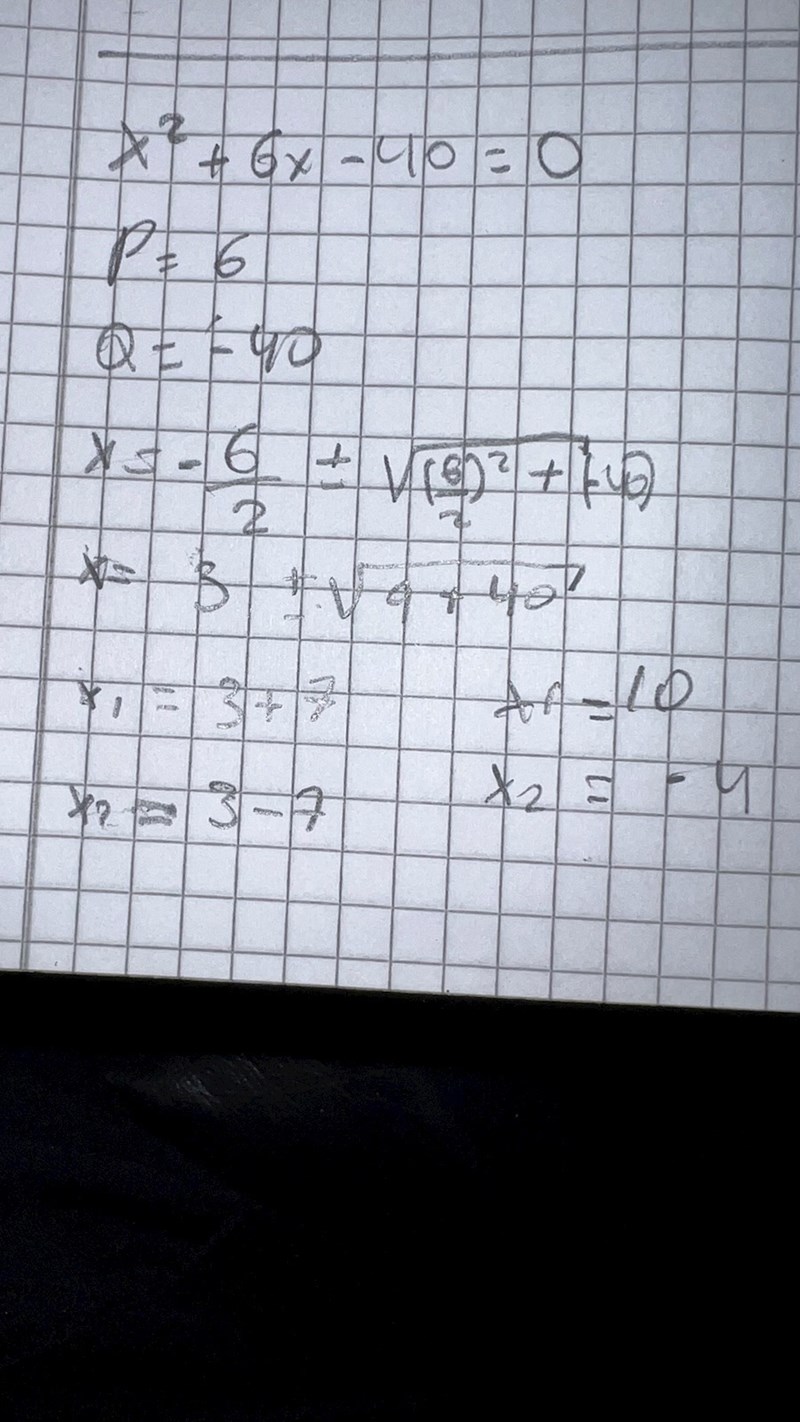 x² + 6x - 40 = 0
P = 6
Q = -40
x = - 6/2 ± √(6/2)² + (-40)
x = 3 ± √9 + 40
x₁ = 3 + 7 x₁ = 10
x₂ = 3 - 7 x₂ = -4